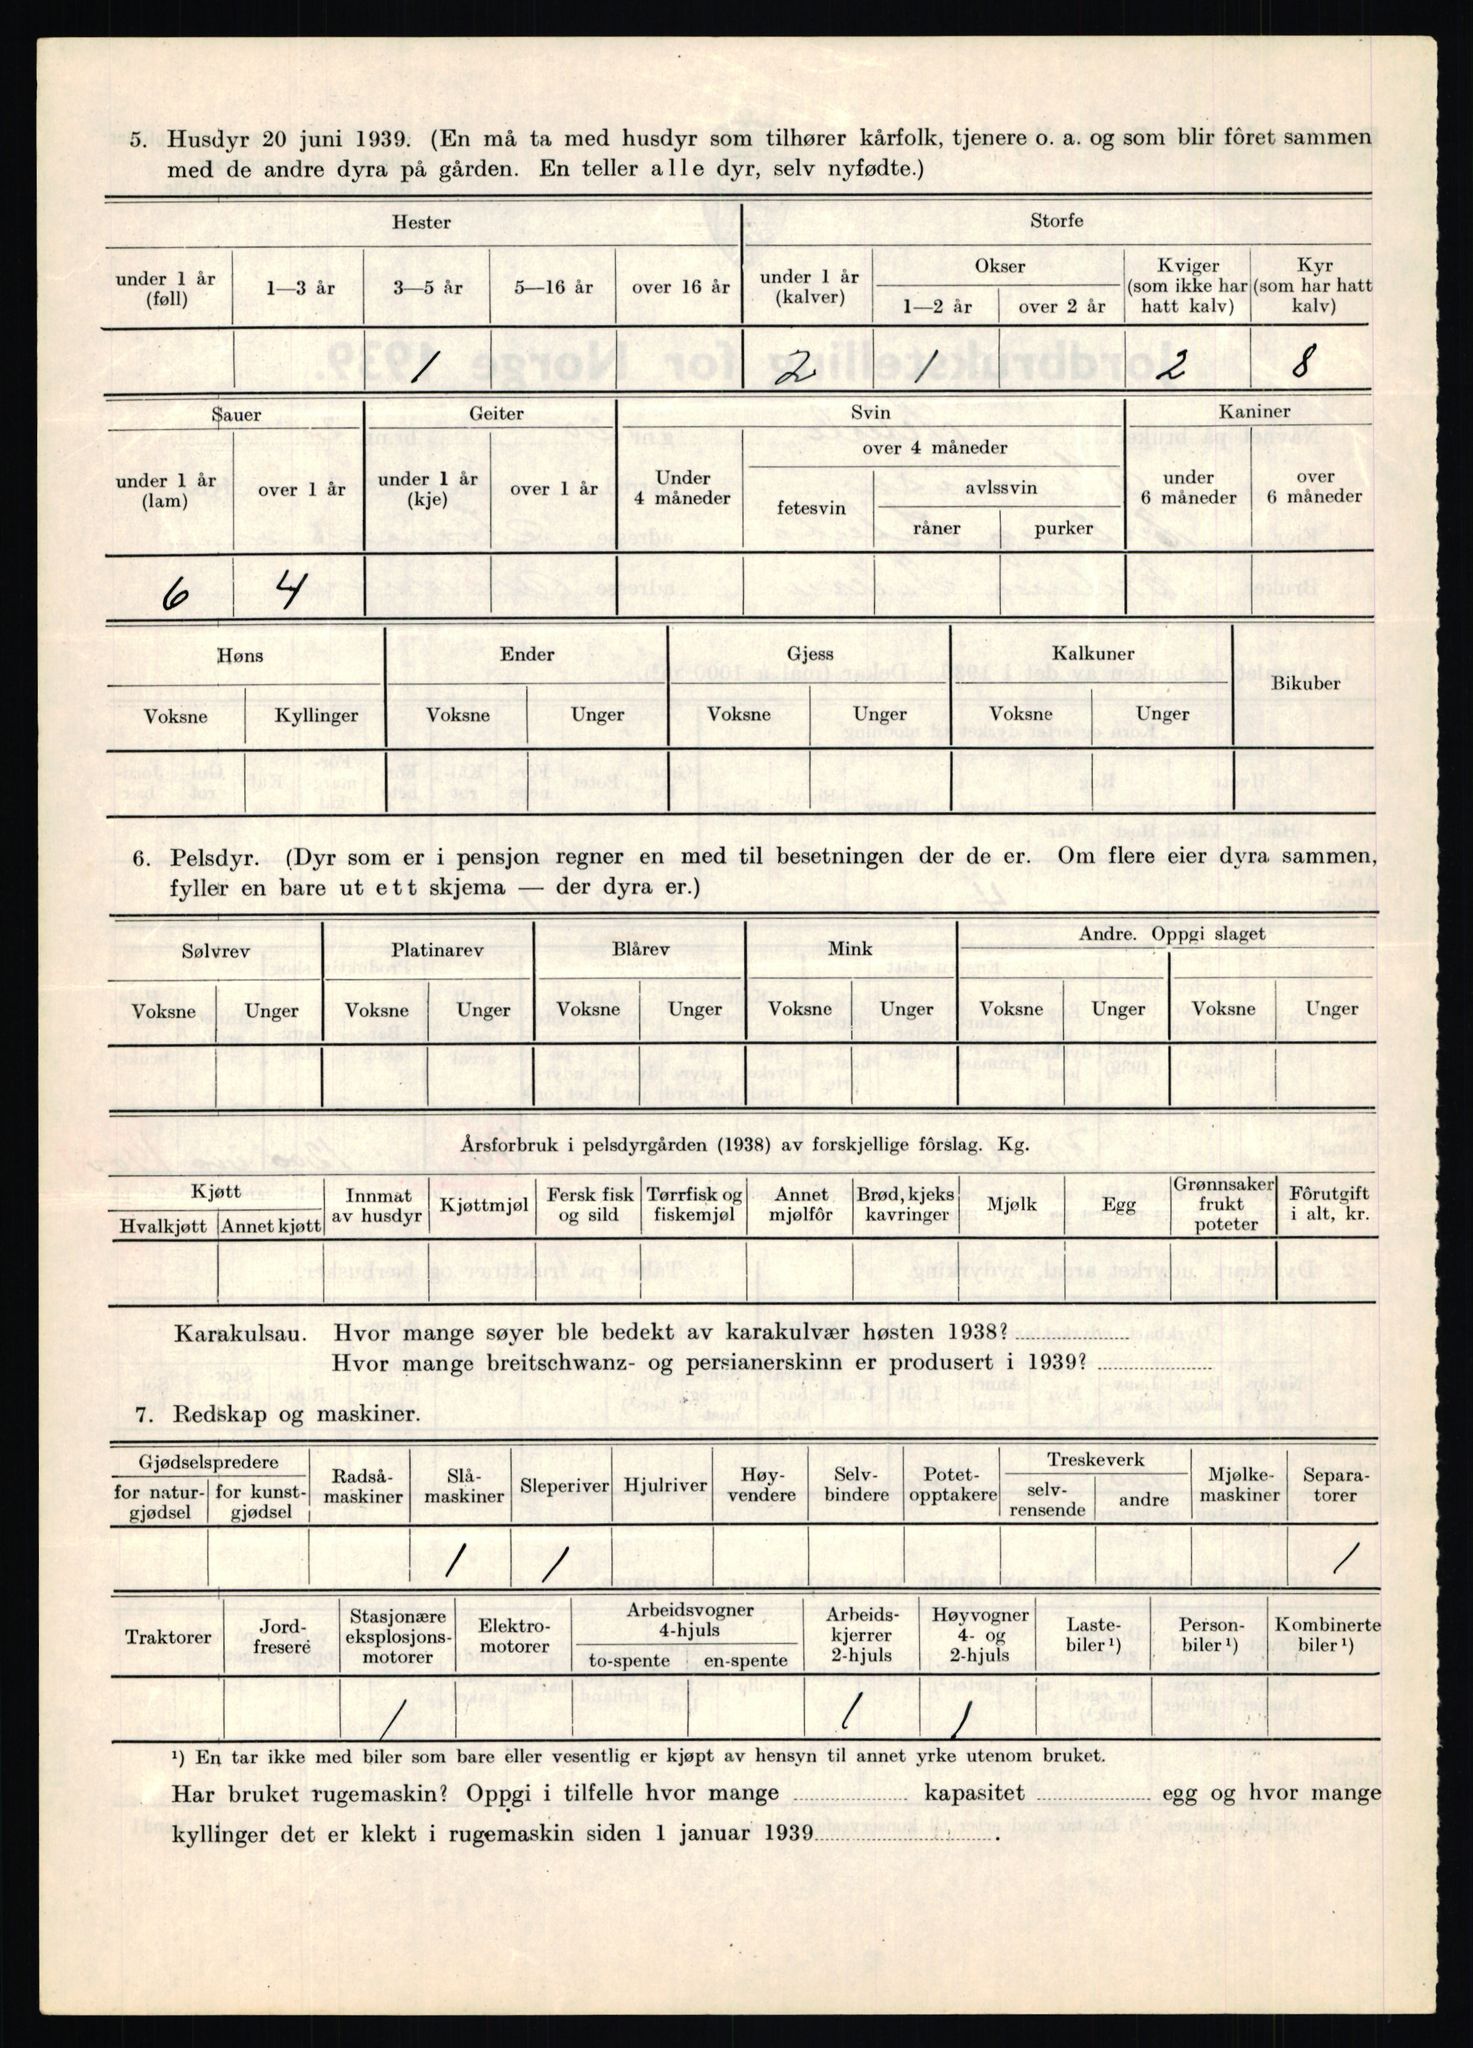 5. Husdyr 20 juni 1939. (En må ta med husdyr som tilhører kårfolk, tjenere o. a. og som blir fôret sammen
med de andre dyra på gården. En teller alle dyr, selv nyfødte.)
Hester Storfe
under 1 år (føll) 1—3 år 3—5 år 5—16 år over 16 år under 1 år (kalver) Okser 1—2 år over 2 år Kviger (som ikke har hatt kalv) Kyr (som har hatt kalv)
1 2 1 2 8
Sauer Geiter Svin Kaniner
under 1 år (lam) over 1 år under 1 år (kje) over 1 år Under 4 måneder over 4 måneder fetesvin avlssvin råner purker under 6 måneder over 6 måneder
6 4
Høns Ender Gjess Kalkuner Bikuber
Voksne Kyllinger Voksne Unger Voksne Unger Voksne Unger
6. Pelsdyr. (Dyr som er i pensjon regner en med til besetningen der de er. Om flere eier dyra sammen,
fyller en bare ut ett skjema — der dyra er.)
Sølvrev Platinarev Blårev Mink Andre. Oppgi slaget
Voksne Unger Voksne Unger Voksne Unger Voksne Unger Voksne Unger Voksne Unger
Årsforbruk i pelsdyrgården (1938) av forskjellige fôrslag. Kg.
Kjøtt Hvalkjøtt Annet kjøtt Innmat av husdyr Kjøttmjøl Fersk fisk og sild Tørrfisk og fiskemjøl Annet mjølfôr Brød, kjeks kavringer Mjølk Egg Grønnsaker frukt poteter Fôrutgift i alt, kr.
Karakulsau. Hvor mange søyer ble bedekt av karakulvær høsten 1938?
Hvor mange breitschwanz- og persianerskinn er produsert i 1939?
7. Redskap og maskiner.
Gjødselspredere for natur-gjødsel for kunst-gjødsel Radså-maskiner Slå-maskiner Sleperiver Hjulriver Høy-vendere Selv-bindere Potet-opptakere Treskeverk selv-rensende andre Mjølke-maskiner Separa-torer
1 1 1
Traktorer Jord-fresere Stasjonære eksplosjons-motorer Elektro-motorer Arbeidsvogner 4-hjuls to-spente en-spente Arbeids-kjerrer 2-hjuls Høyvogner 4- og 2-hjuls Laste-biler ¹) Person-biler ¹) Kombinerte biler ¹)
1 1 1
¹) En tar ikke med biler som bare eller vesentlig er kjøpt av hensyn til annet yrke utenom bruket.
Har bruket rugemaskin? Oppgi i tilfelle hvor mange kapasitet egg og hvor mange
kyllinger det er klekt i rugemaskin siden 1 januar 1939 .